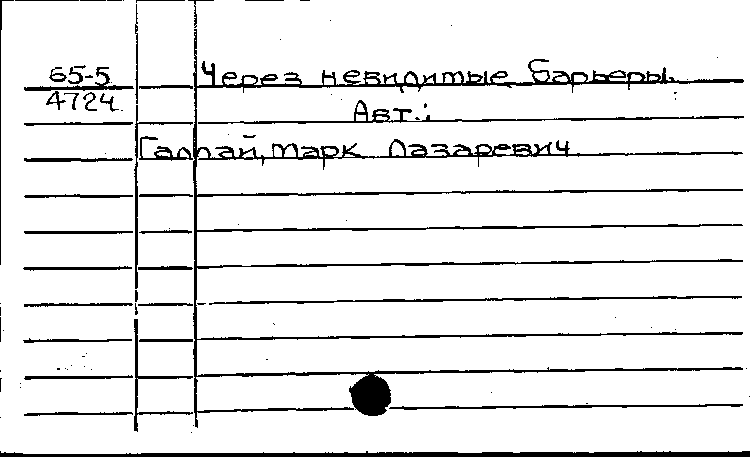 65-5 Через невидимые барьеры.
4724 Авт.:
Галлай, Марк Лазаревич